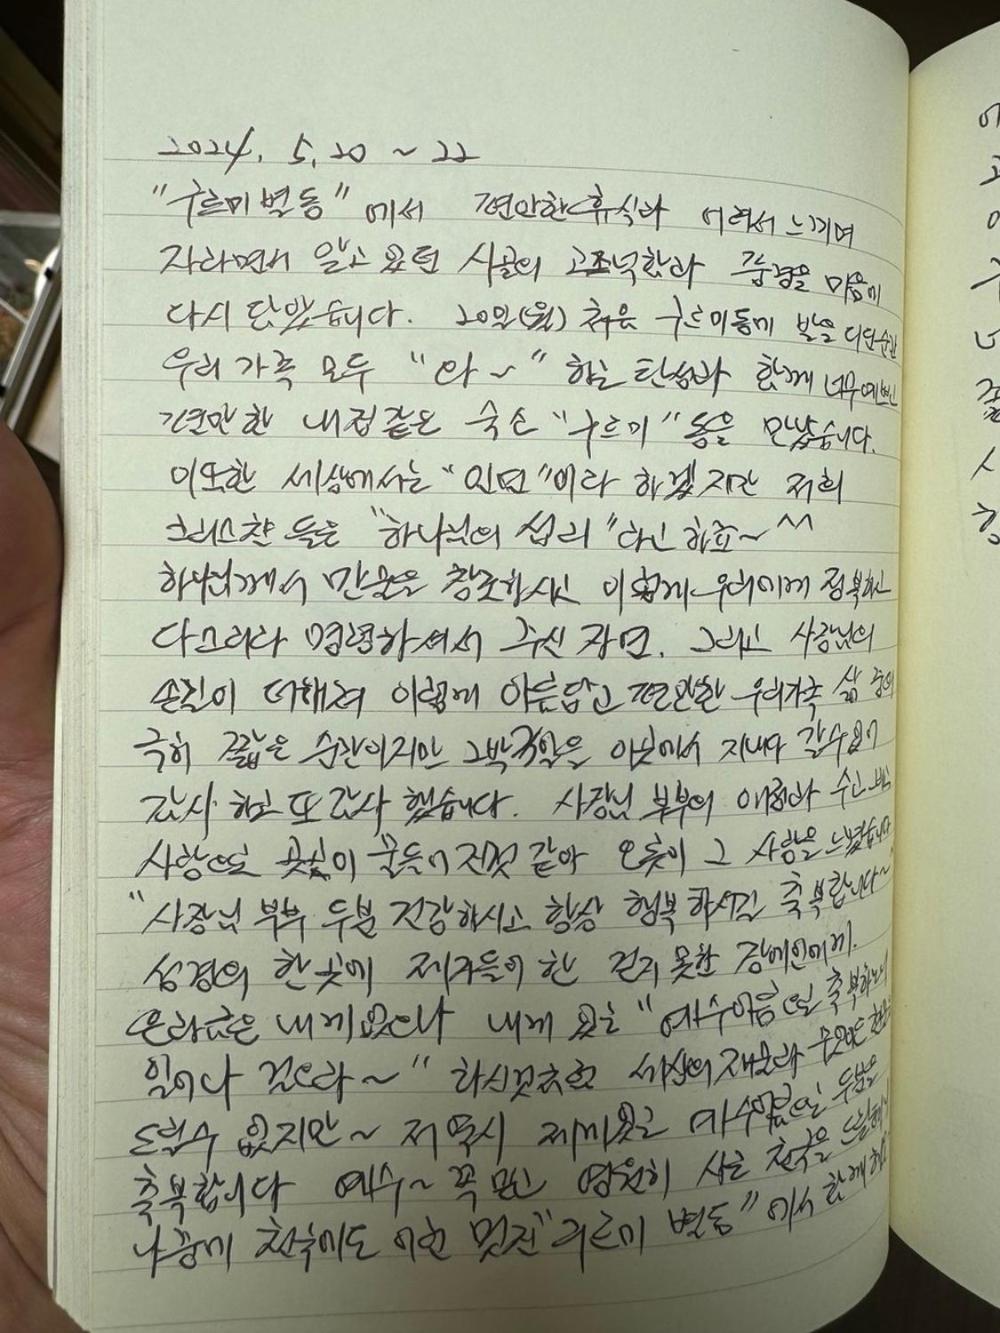 2024. 5. 20 ~ 22
"구르미 별동" 에서 편안한 휴식과 어려서 느끼며
자라면서 잊고 있던 시골의 고즈넉함과 풍경을 마음에
다시 담았습니다. 20일(월) 처음 구르미동에 발을 디딘순간
우리 가족 모두 "와~" 하는 탄성과 함께 너무예쁘고
편안한 내집같은 숙소 "구르미"동을 만났습니다.
이또한 세상에서는 "인연"이라 하겠지만 저희
크리스찬 들은 "하나님의 섭리"라고 하죠~ ^^
하나님께서 만물을 창조하시고 이렇게 우리에게 정복하고
다스리라 명령하셔서 주신 자연, 그리고 사장님의
손길이 더해져 이렇게 아름답고 편안한 우리가족 삶 중의
극히 짧은 순간이지만 2박3일을 이곳에서 지내다 갈수있어
감사 하고 또 감사 했습니다. 사장님 부부의 애정과 수고
사랑으로 곳곳이 만들어 진것 같아 오롯이 그 사랑을 느꼈습니다
"사장님 부부 두분 건강하시고 항상 행복 하시길 축복합니다~"
성경의 한 곳에 제자들이 한 걷지 못한 장애인에게.
은과금은 내게없으나 내게 있는 "예수이름으로 축복하노니
일어나 걸으라~" 하신것처럼 세상의 재물과
드릴수 없지만~ 저 역시 제게있는 예수이름으로 두분을
축복합니다 예수~ 꼭 믿고 영원히 사는 천국을
나중에 천국에도 이런 멋진 "구르미 별동" 에서 함께